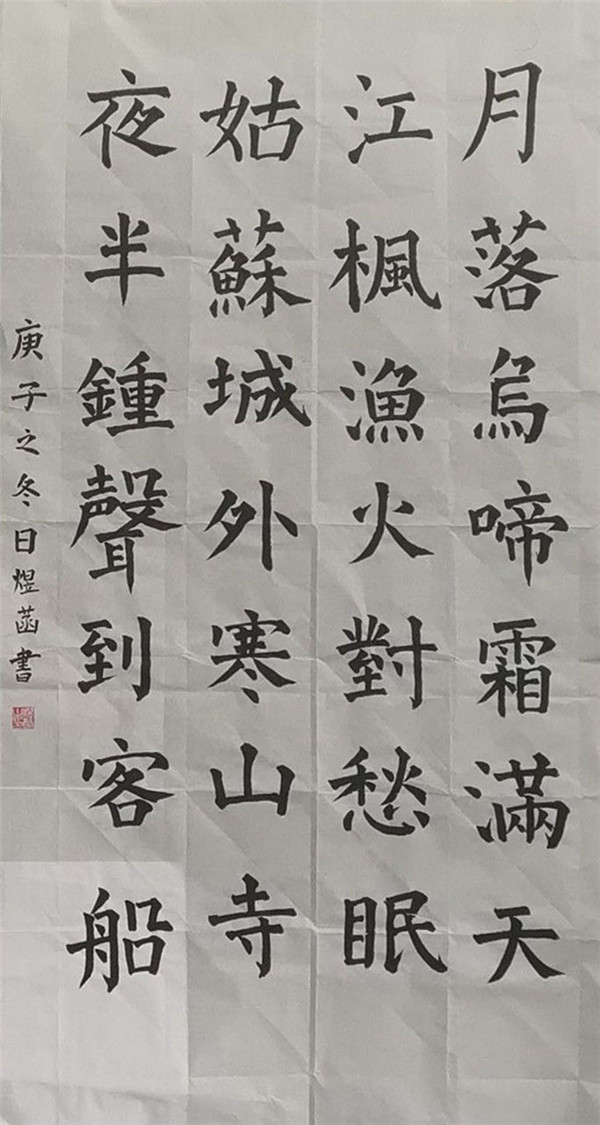 月落烏啼霜滿天
江楓漁火對愁眠
姑蘇城外寒山寺
夜半鍾聲到客船
庚子之冬日煜菡書